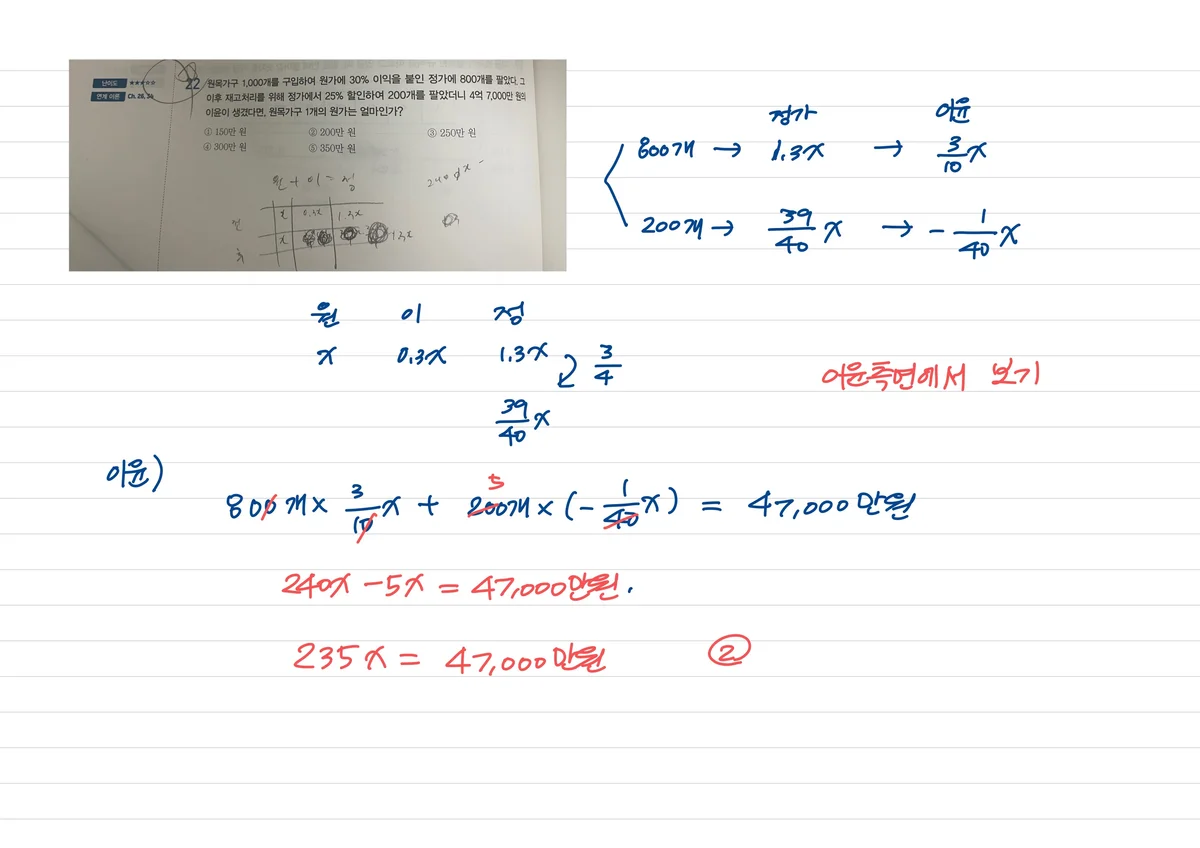 난이도 ★★★☆☆
연계 이론 Ch. 26, 34
22 원목가구 1,000개를 구입하여 원가에 30% 이익을 붙인 정가에 800개를 팔았다. 그
이후 재고처리를 위해 정가에서 25% 할인하여 200개를 팔았더니 4억 7,000만 원의
이윤이 생겼다면, 원목가구 1개의 원가는 얼마인가?
① 150만 원 ② 200만 원 ③ 250만 원
④ 300만 원 ⑤ 350만 원
원 + 이 = 정
x 0.3x 1.3x
x 1.3x
정가 이윤
800개 → 1.3x → 3/10 x
200개 → 39/40 x → - 1/40 x
원 이 정
x 0.3x 1.3x 3/4
39/40 x
이윤측면에서 보기
이윤)
5
800개 × 3/10 x + 200개 × (- 1/40 x) = 47,000만원
240x - 5x = 47,000만원.
235x = 47,000만원 ②